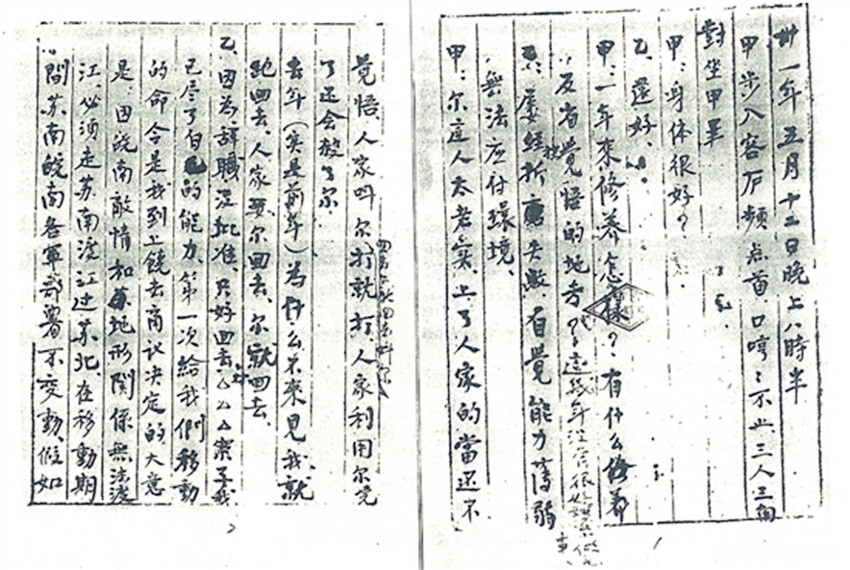 卅一年五月十二日晚上八時半
甲步入客厅頻点首口哼哼不止三人三角
對坐甲呈
甲：身体很好？
乙、還好、
甲：一年來修养怎樣？有什么修养
反省覺悟的地方？
乙：屡經折磨失敗自覺能力薄弱
無法应付環境、
甲：尔這人太老实、上了人家的當还不
覚悟、人家叫尔打就打人家利用尔完
了还会放了尔、
去年（实是前年）為什么不來見我、就
跑回去、人家要尔回去、尔就回去、
乙、因為辞職没批准、只好回去△△△案子我
已尽了自己的能力、第一次給我們移動
的命令是我到上饒去商议决定的大意
是、因皖南敵情和地形関係無法渡
江、必須走苏南渡江过苏北在移動期
間苏南皖南各軍部署不变動、假如